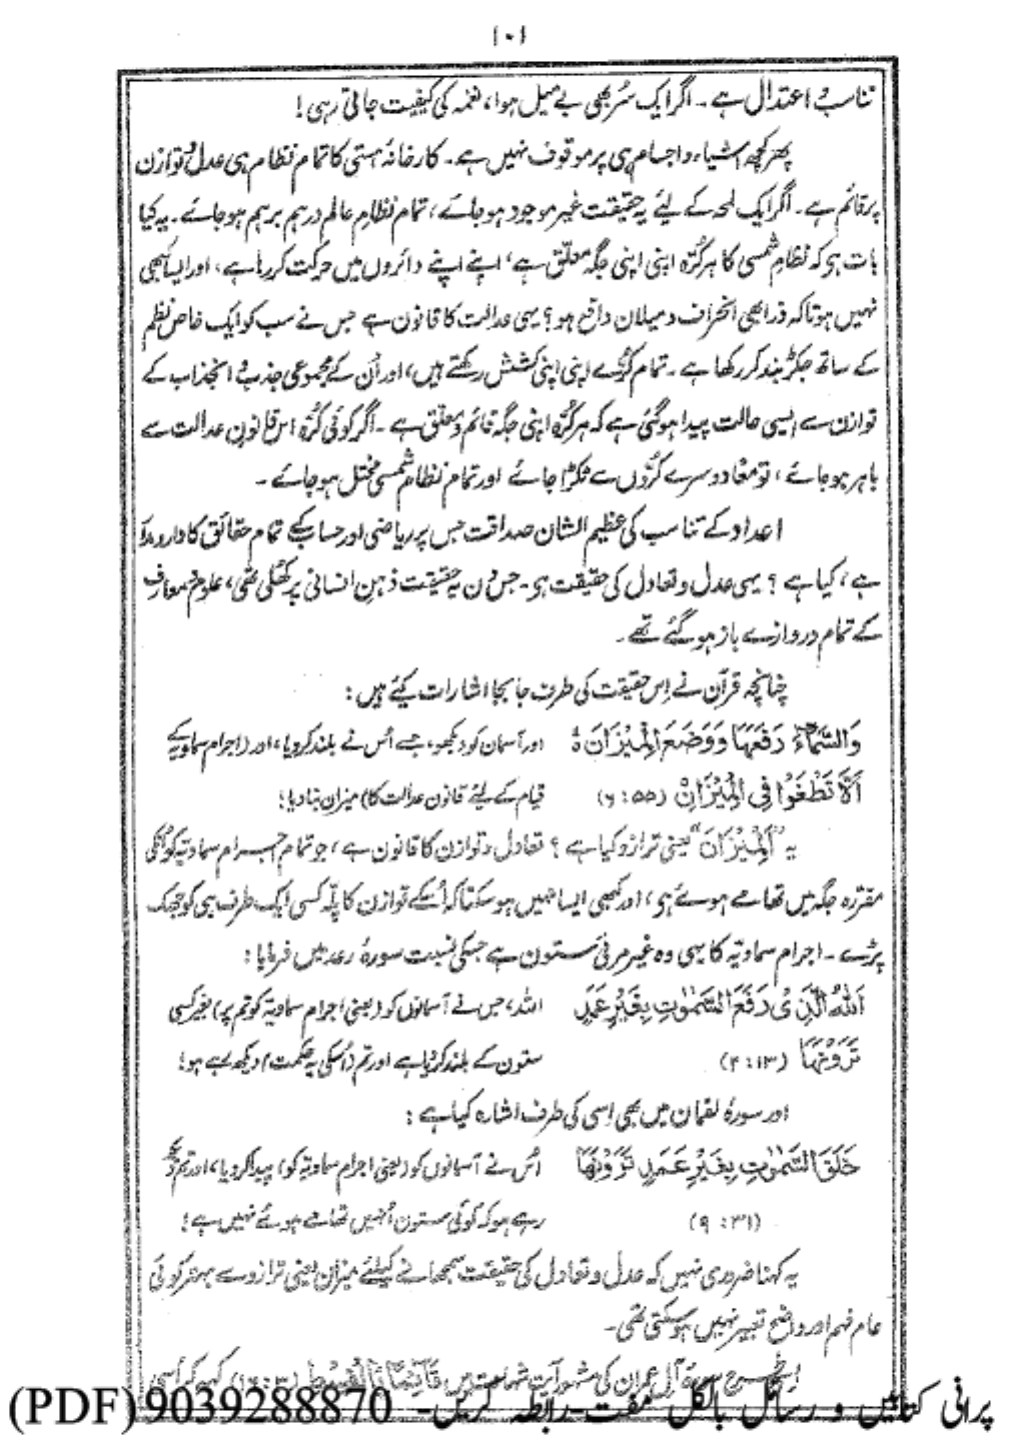 ۱۰۱
تناسب و اعتدال ہے۔ اگر ایک سُر بھی بے میل ہوا، نغمہ کی کیفیت جاتی رہی!
پھر کچھ اشیاء و اجسام ہی پر موقوف نہیں ہے۔ کارخانۂ ہستی کا تمام نظام ہی عدل و توازن
پر قائم ہے۔ اگر ایک لمحہ کے لیئے یہ حقیقت غیر موجود ہو جائے، تمام نظامِ عالم درہم برہم ہو جائے۔ یہ کیا
بات ہو کہ نظامِ شمسی کا ہر کُرّہ اپنی اپنی جگہ معلّق ہے، اپنے اپنے دائروں میں حرکت کر رہا ہے، اور ایسا کبھی
نہیں ہوتا کہ ذرا بھی انحراف و میلان واقع ہو؟ یہی عدالت کا قانون ہے جس نے سب کو ایک خاص نظم
کے ساتھ جکڑ بند کر رکھا ہے۔ تمام کُرّے اپنی اپنی کشش رکھتے ہیں، اور اُن کے مجموعی جذب و انجذاب کے
توازن سے ایسی حالت پیدا ہو گئی ہے کہ ہر کُرّہ اپنی جگہ قائم و معلّق ہے۔ اگر کوئی کُرّہ اس قانونِ عدالت سے
باہر ہو جائے، تو معاً دوسرے کُرّوں سے ٹکرا جائے اور تمام نظامِ شمسی مختل ہو جائے۔
اعداد کے تناسب کی عظیم الشان صداقت جس پر ریاضی اور حساب کے تمام حقائق کا دار و مدار
ہے، کیا ہے؟ یہی عدل و تعادل کی حقیقت ہو۔ جس دن یہ حقیقت ذہنِ انسانی پر کھُلی تھی، علوم و معارف
کے تمام دروازے باز ہو گئے تھے۔
چنانچہ قرآن نے اِس حقیقت کی طرف جا بجا اشارات کیئے ہیں:
وَالسَّمَآءَ رَفَعَهَا وَوَضَعَ الْمِيْزَانَ ۙ اور آسمان کو دیکھو، جسے اُس نے بلند کر دیا، اور (اجرامِ سماویہ کے
اَلَّا تَطْغَوْا فِي الْمِيْزَانِ (۵۵: ۶) قیام کے لیئے قانونِ عدالت کا) میزان بنا دیا!
یہ "اَلْمِيْزَانَ" یعنی ترازو کیا ہے؟ تعادل و توازن کا قانون ہے، جو تمام اجسرام سماویہ کو اُنکی
مقررہ جگہ میں تھامے ہوئے ہو، اور کبھی ایسا نہیں ہو سکتا کہ اُسکے توازن کا پلّہ کسی ایک طرف ہی کو جھک
پڑے۔ اجرام سماویہ کا یہی وہ غیر مرئی ستون ہے جسکی نسبت سورۂ رعد میں فرمایا:
اَللّٰهُ الَّذِيْ رَفَعَ السَّمٰوٰتِ بِغَيْرِ عَمَدٍ اللہ، جس نے آسمانوں کو (یعنی اجرام سماویہ کو تم پر) بغیر کسی
تَرَوْنَهَا (۱۳: ۲) ستون کے بلند کر دیا ہے اور تم (اُسکی یہ حکمت) دیکھ رہے ہو!
اور سورۂ لقمان میں بھی اِسی کی طرف اشارہ کیا ہے:
خَلَقَ السَّمٰوٰتِ بِغَيْرِ عَمَدٍ تَرَوْنَهَا اُس نے آسمانوں کو (یعنی اجرام سماویہ کو) پیدا کر دیا، اور تم دیکھ
(۳۱: ۹) رہے ہو کہ کوئی ستون اُنہیں تھامے ہوئے نہیں ہے!
یہ کہنا ضروری نہیں کہ عدل و تعادل کی حقیقت سمجھانے کیلئے میزان یعنی ترازو سے بہتر کوئی
عام فہم اور واضح تعبیر نہیں ہو سکتی تھی۔
اِسی طرح سورۂ آلِ عمران کی مشہور آیت شہادت میں قَآئِمًا بِالْقِسْطِ کہہ کر اُسی
پرانی کتابیں و رسائل بالکل مفت - رابطہ کریں - 9039288870 (PDF)